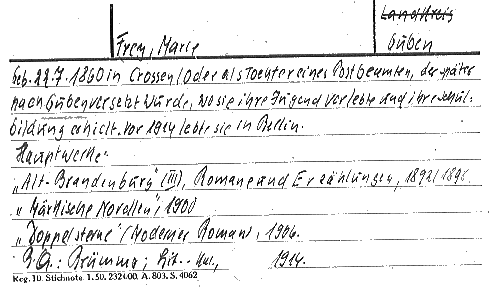 Landkreis
Frey, Marie Guben
Geb. 22.7.1860 in Crossen/Oder als Tochter eines Postbeamten, der später
nach Guben versetzt wurde, wo sie ihre Jugend verlebte und ihre Schul-
bildung erhielt. Vor 1914 lebte sie in Berlin.
Hauptwerke:
„Alt-Brandenburg" (III), Romane und Erzählungen, 1892/1898
„Märkische Novellen", 1900
„Doppelsterne" (Moderner Roman), 1906.
Brümmer; Lit. 1914.
Reg. 10. Stichnote. 1.50. 2324.00. A. 803. S. 4062